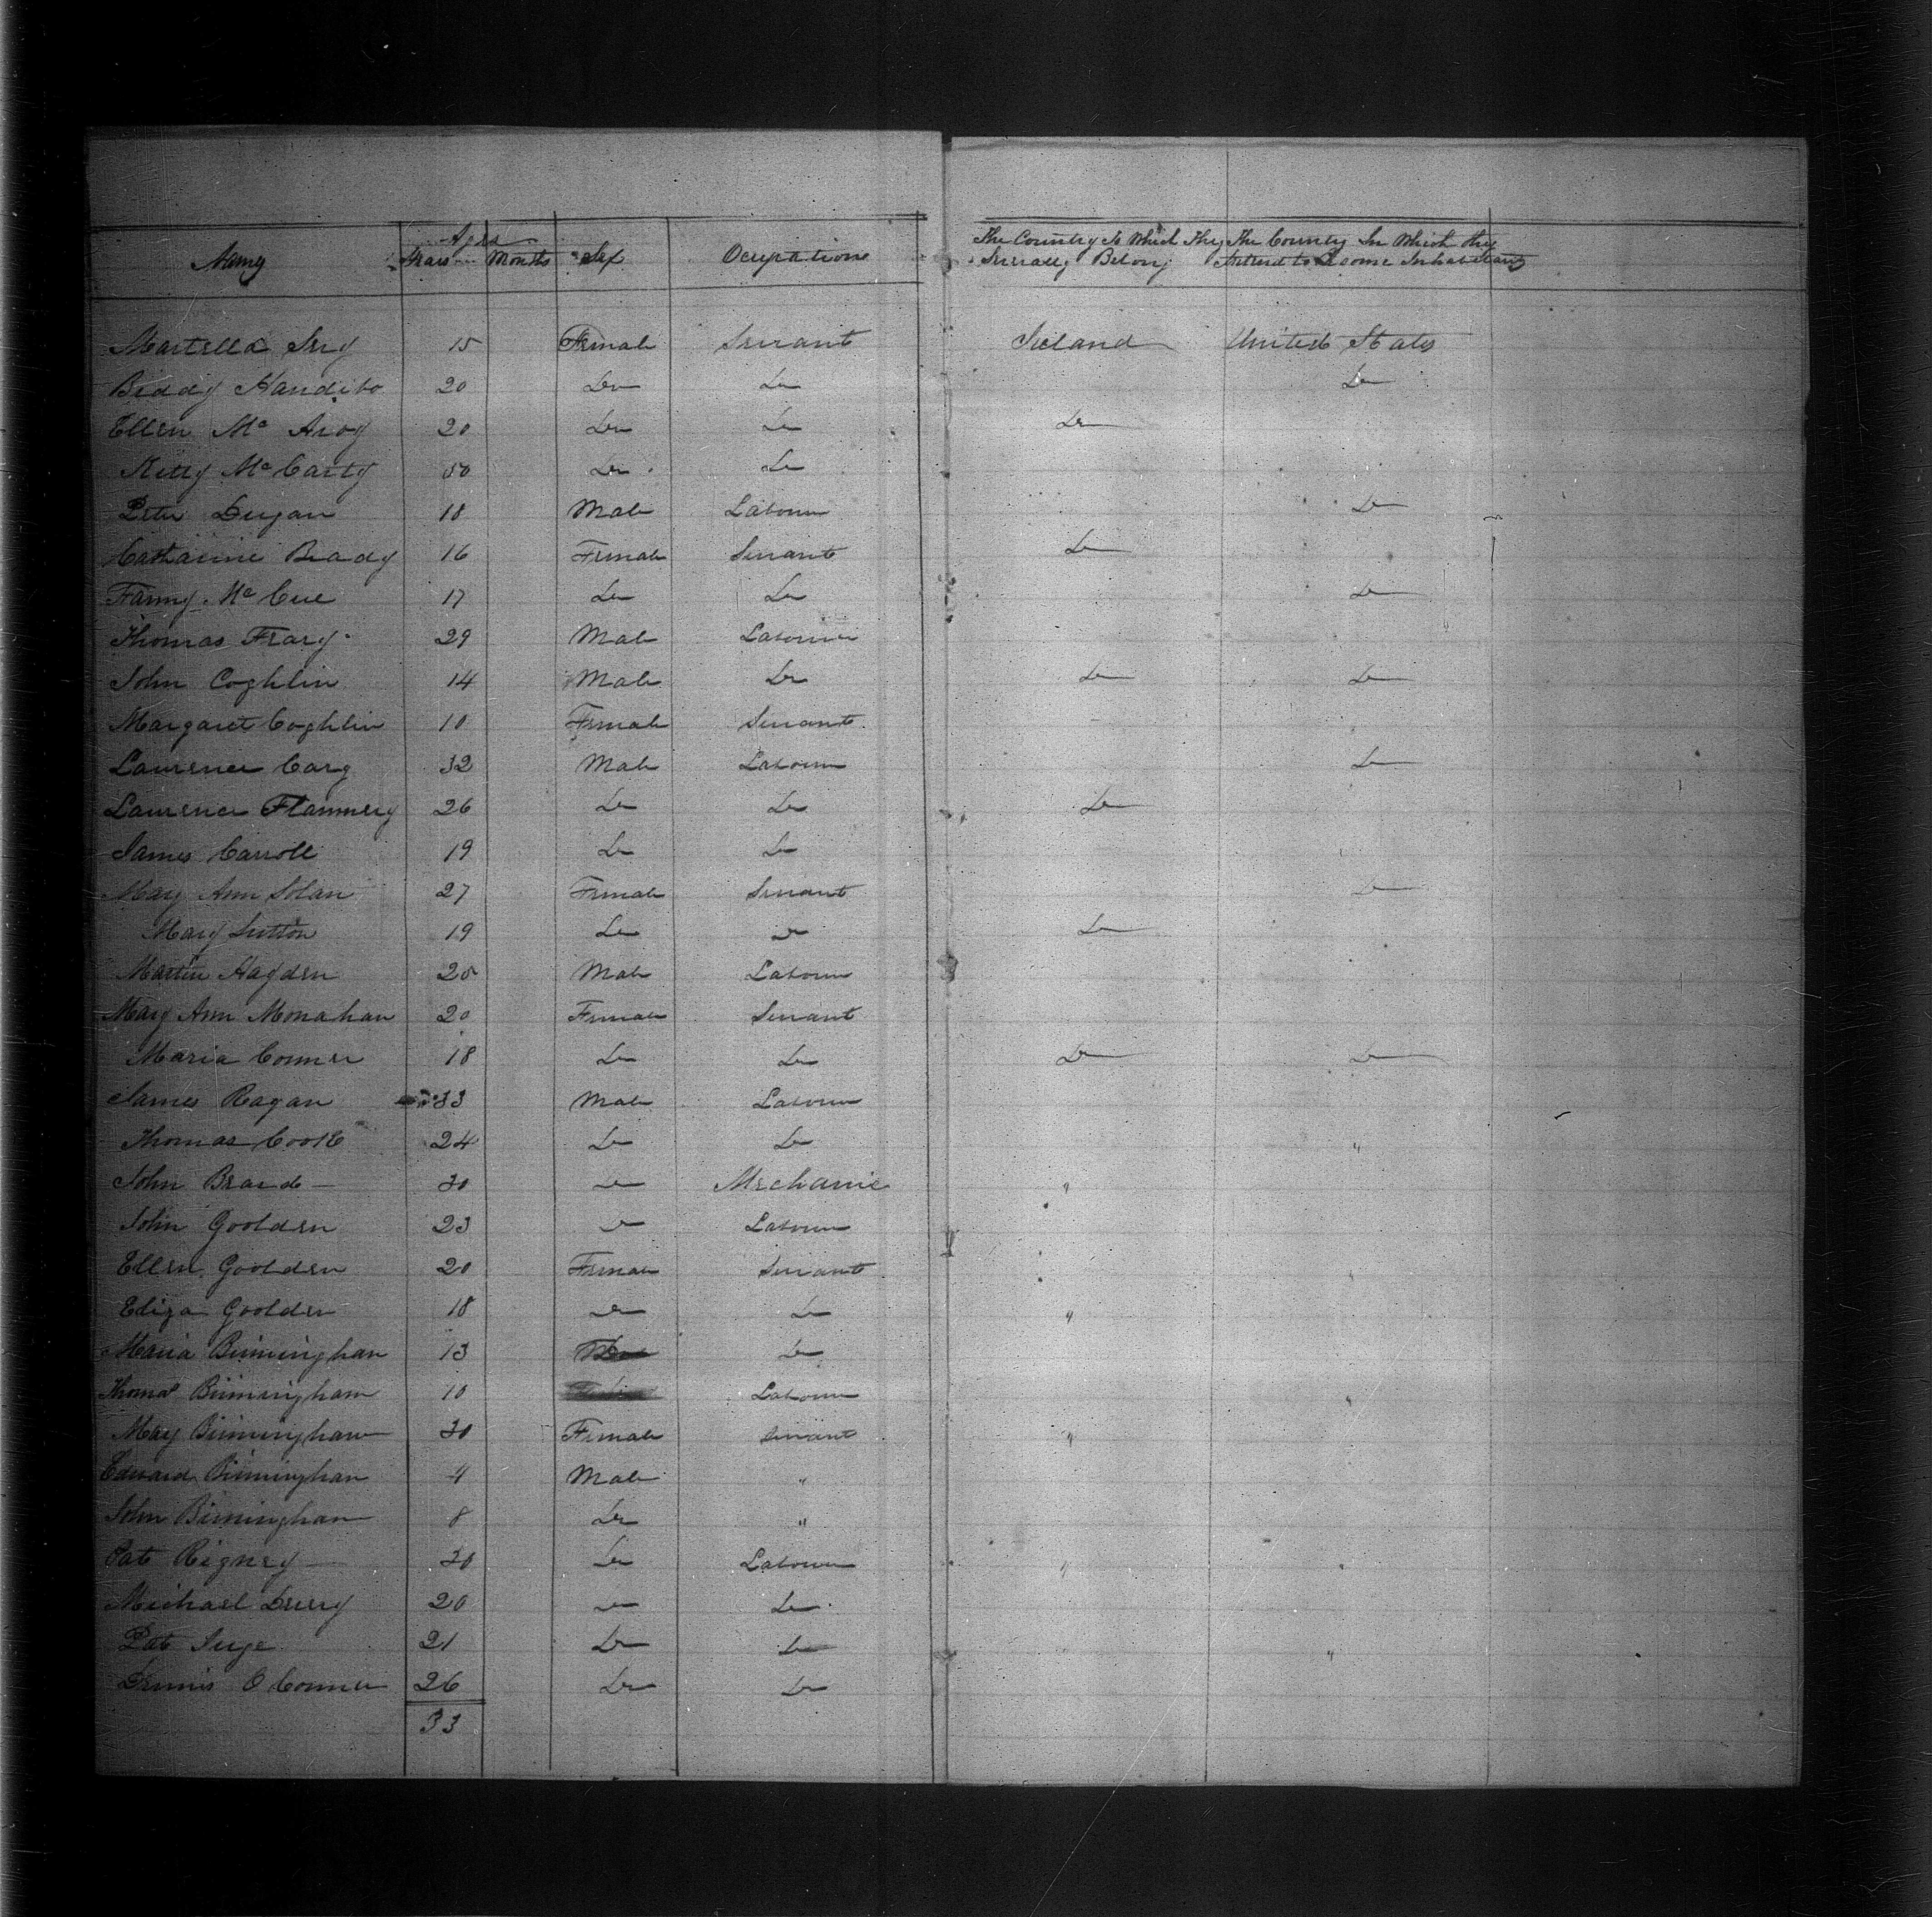 Names Ages Years Months Sex Occupations The Country to Which They Severally Belong The Country In Which they Intend to Become Inhabitants
Martella 15 Female Servant Ireland United States
Biddy 20 Do Do Do
Ellen Mc 20 Do Do Do
Kitty McCarty 50 Do Do
Peter Dugan 18 Male Labourer Do
Catharine Brady 16 Female Servant Do
Fanny McCue 17 Do Do Do
Thomas Frary 29 Male Labourer
John Coghlin 14 Male Do Do Do
Margaret Coghlin 10 Female Servant
Laurence Carg 32 Male Labourer Do
Laurence Flannery 26 Do Do Do
James Carroll 19 Do Do
Mary Ann Solan 27 Female Servant Do
Mary Sutton 19 Do Do Do
Martin Hayden 25 Male Labourer
Mary Ann Monahan 20 Female Servant
Maria Conner 18 Do Do Do Do
James Ragan 33 Male Labourer
Thomas Cook 24 Do Do "
John 30 Do Mechanic "
John Goolden 23 Do Labourer
Ellen Goolden 20 Female Servant "
Eliza Goolden 18 Do Do "
Maria Birmingham 13 Do
Thomas Birmingham 10 Labourer "
Mary Birmingham 30 Female Servant "
Edward Birmingham 4 Male "
John Birmingham 8 Do "
Pat Rigney 30 Do Labourer " "
Michael 20 Do Do
Pat 21 Do Do "
Dennis O Conner 26 Do Do
33